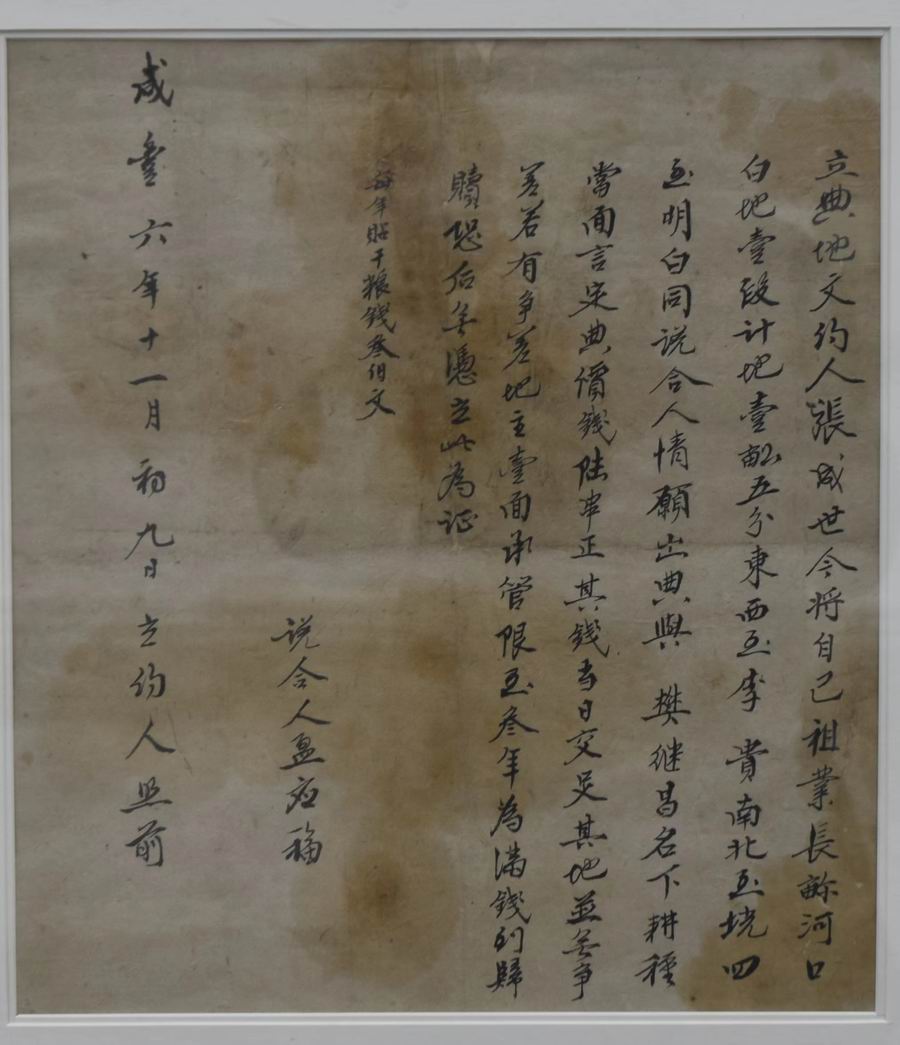 立典地文约人張成世今将自己祖業長畛河口
白地壹段计地壹畝五分東西至李 貴南北至塄四
至明白同说合人情願出典與 樊继昌名下耕種
當面言定典價錢陆串正其錢当日交足其地並無争
差若有争差地主壹面承管限至叁年為滿錢到歸
贖恐后無憑立此為证
每年貼干粮錢叁伯文
说合人孟应福
咸豐六年十一月初九日立约人照前